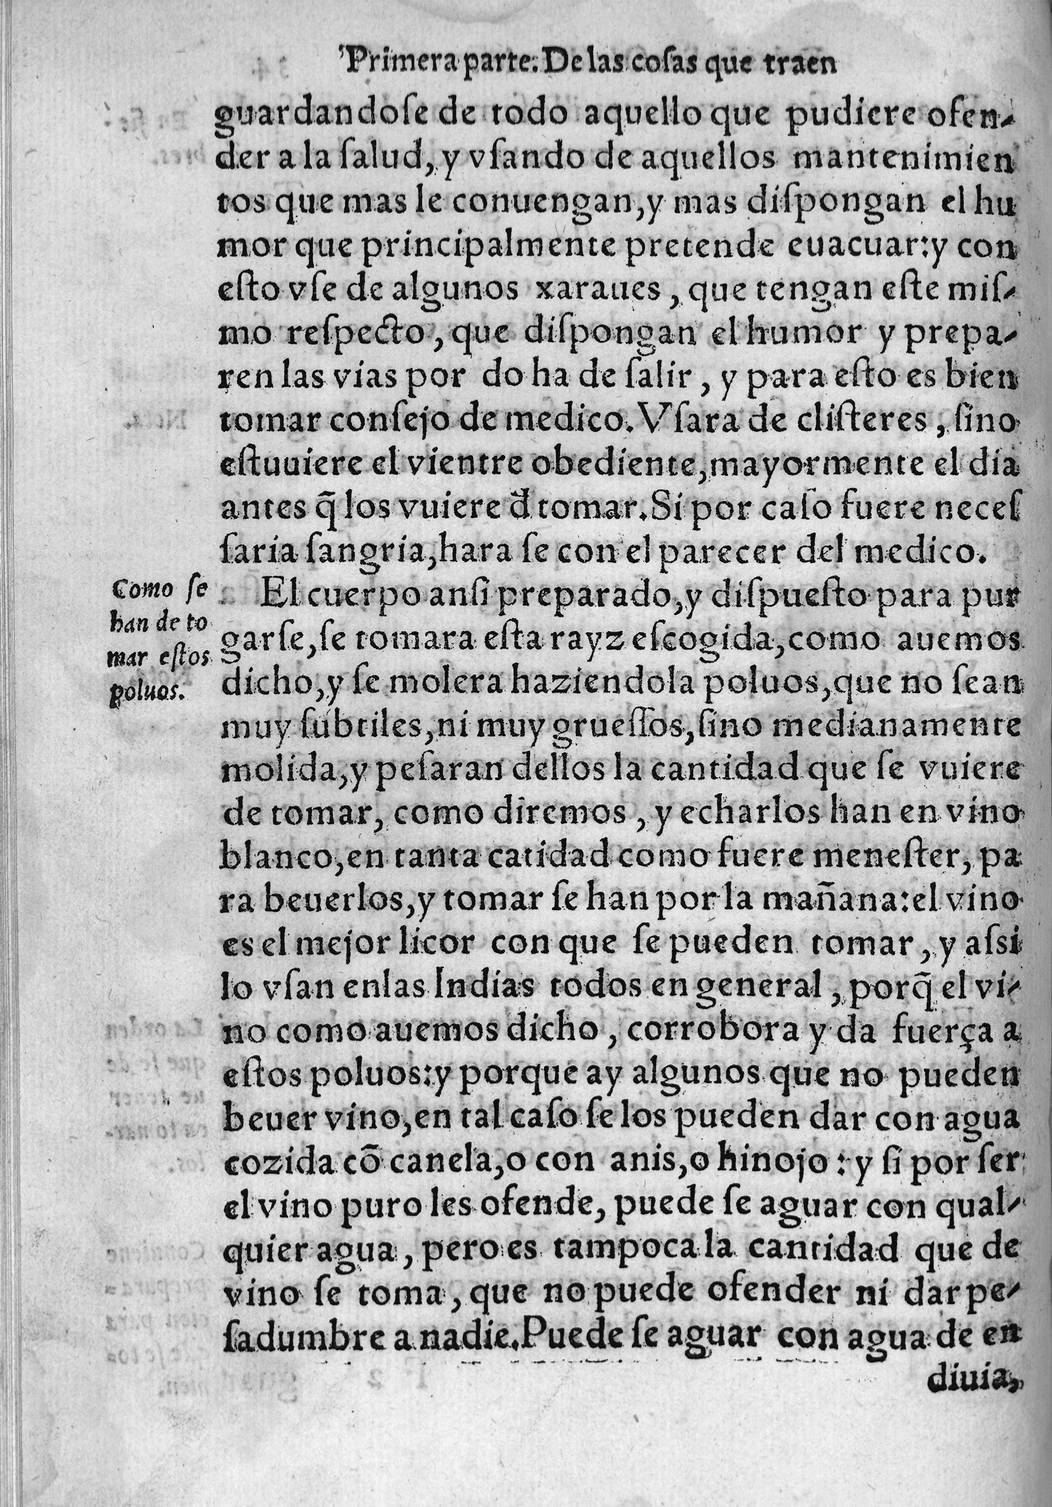 Primera parte. De las coſas que traen
guardandoſe de todo aquello que pudiere ofen-
der a la ſalud, y vſando de aquellos mantenimien
tos que mas le conuengan, y mas diſpongan el hu
mor que principalmente pretende euacuar: y con
eſto vſe de algunos xaraues, que tengan eſte miſ-
mo reſpecto, que diſpongan el humor y prepa-
ren las vias por do ha de ſalir, y para eſto es bien
tomar conſejo de medico. Vſara de cliſteres, ſino
eſtuuiere el vientre obediente, mayormente el dia
antes q̃ los vuiere d̃ tomar. Si por caſo fuere neceſ
ſaria ſangria, hara ſe con el parecer del medico.
Como ſe
han de to
mar eſtos
poluos.
El cuerpo anſi preparado, y diſpueſto para pur
garſe, se tomara eſta rayz eſcogida, como auemos
dicho, y ſe molera haziendola poluos, que no ſean
muy ſubtiles, ni muy grueſſos, ſino medianamente
molida, y peſaran dellos la cantidad que ſe vuiere
de tomar, como diremos, y echarlos han en vino
blanco, en tanta catidad como fuere meneſter, pa
ra beuerlos, y tomar ſe han por la mañana: el vino
es el mejor licor con que ſe pueden tomar, y aſsi
lo vſan enlas Indias todos en general, porq̃ el vi-
no como auemos dicho, corrobora y da fuerça a
eſtos poluos: y porque ay algunos que no pueden
beuer vino, en tal caſo ſe los pueden dar con agua
cozida cõ canela, o con anis, o hinojo: y ſi por ſer
el vino puro les ofende, puede ſe aguar con qual-
quier agua, pero es tampoca la cantidad que de
vino ſe toma, que no puede ofender ni dar pe-
ſadumbre a nadie. Puede ſe aguar con agua de en
diuia,